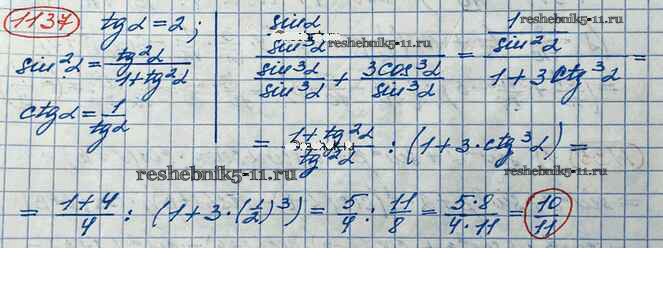 1137 tgα = 2;
sin²α = tg²α / (1+tg²α)
ctgα = 1 / tgα
(sinα / sin³α) / (sin³α / sin³α + 3cos³α / sin³α) = (1 / sin²α) / (1+3ctg³α) =
reshebnik5-11.ru
reshebnik5-11.ru
= (1+tg²α) / tg²α : (1+3·ctg³α) =
reshebnik5-11.ru
= (1+4) / 4 : (1+3·(1/2)³) = 5/4 : 11/8 = 5·8 / 4·11 = 10/11